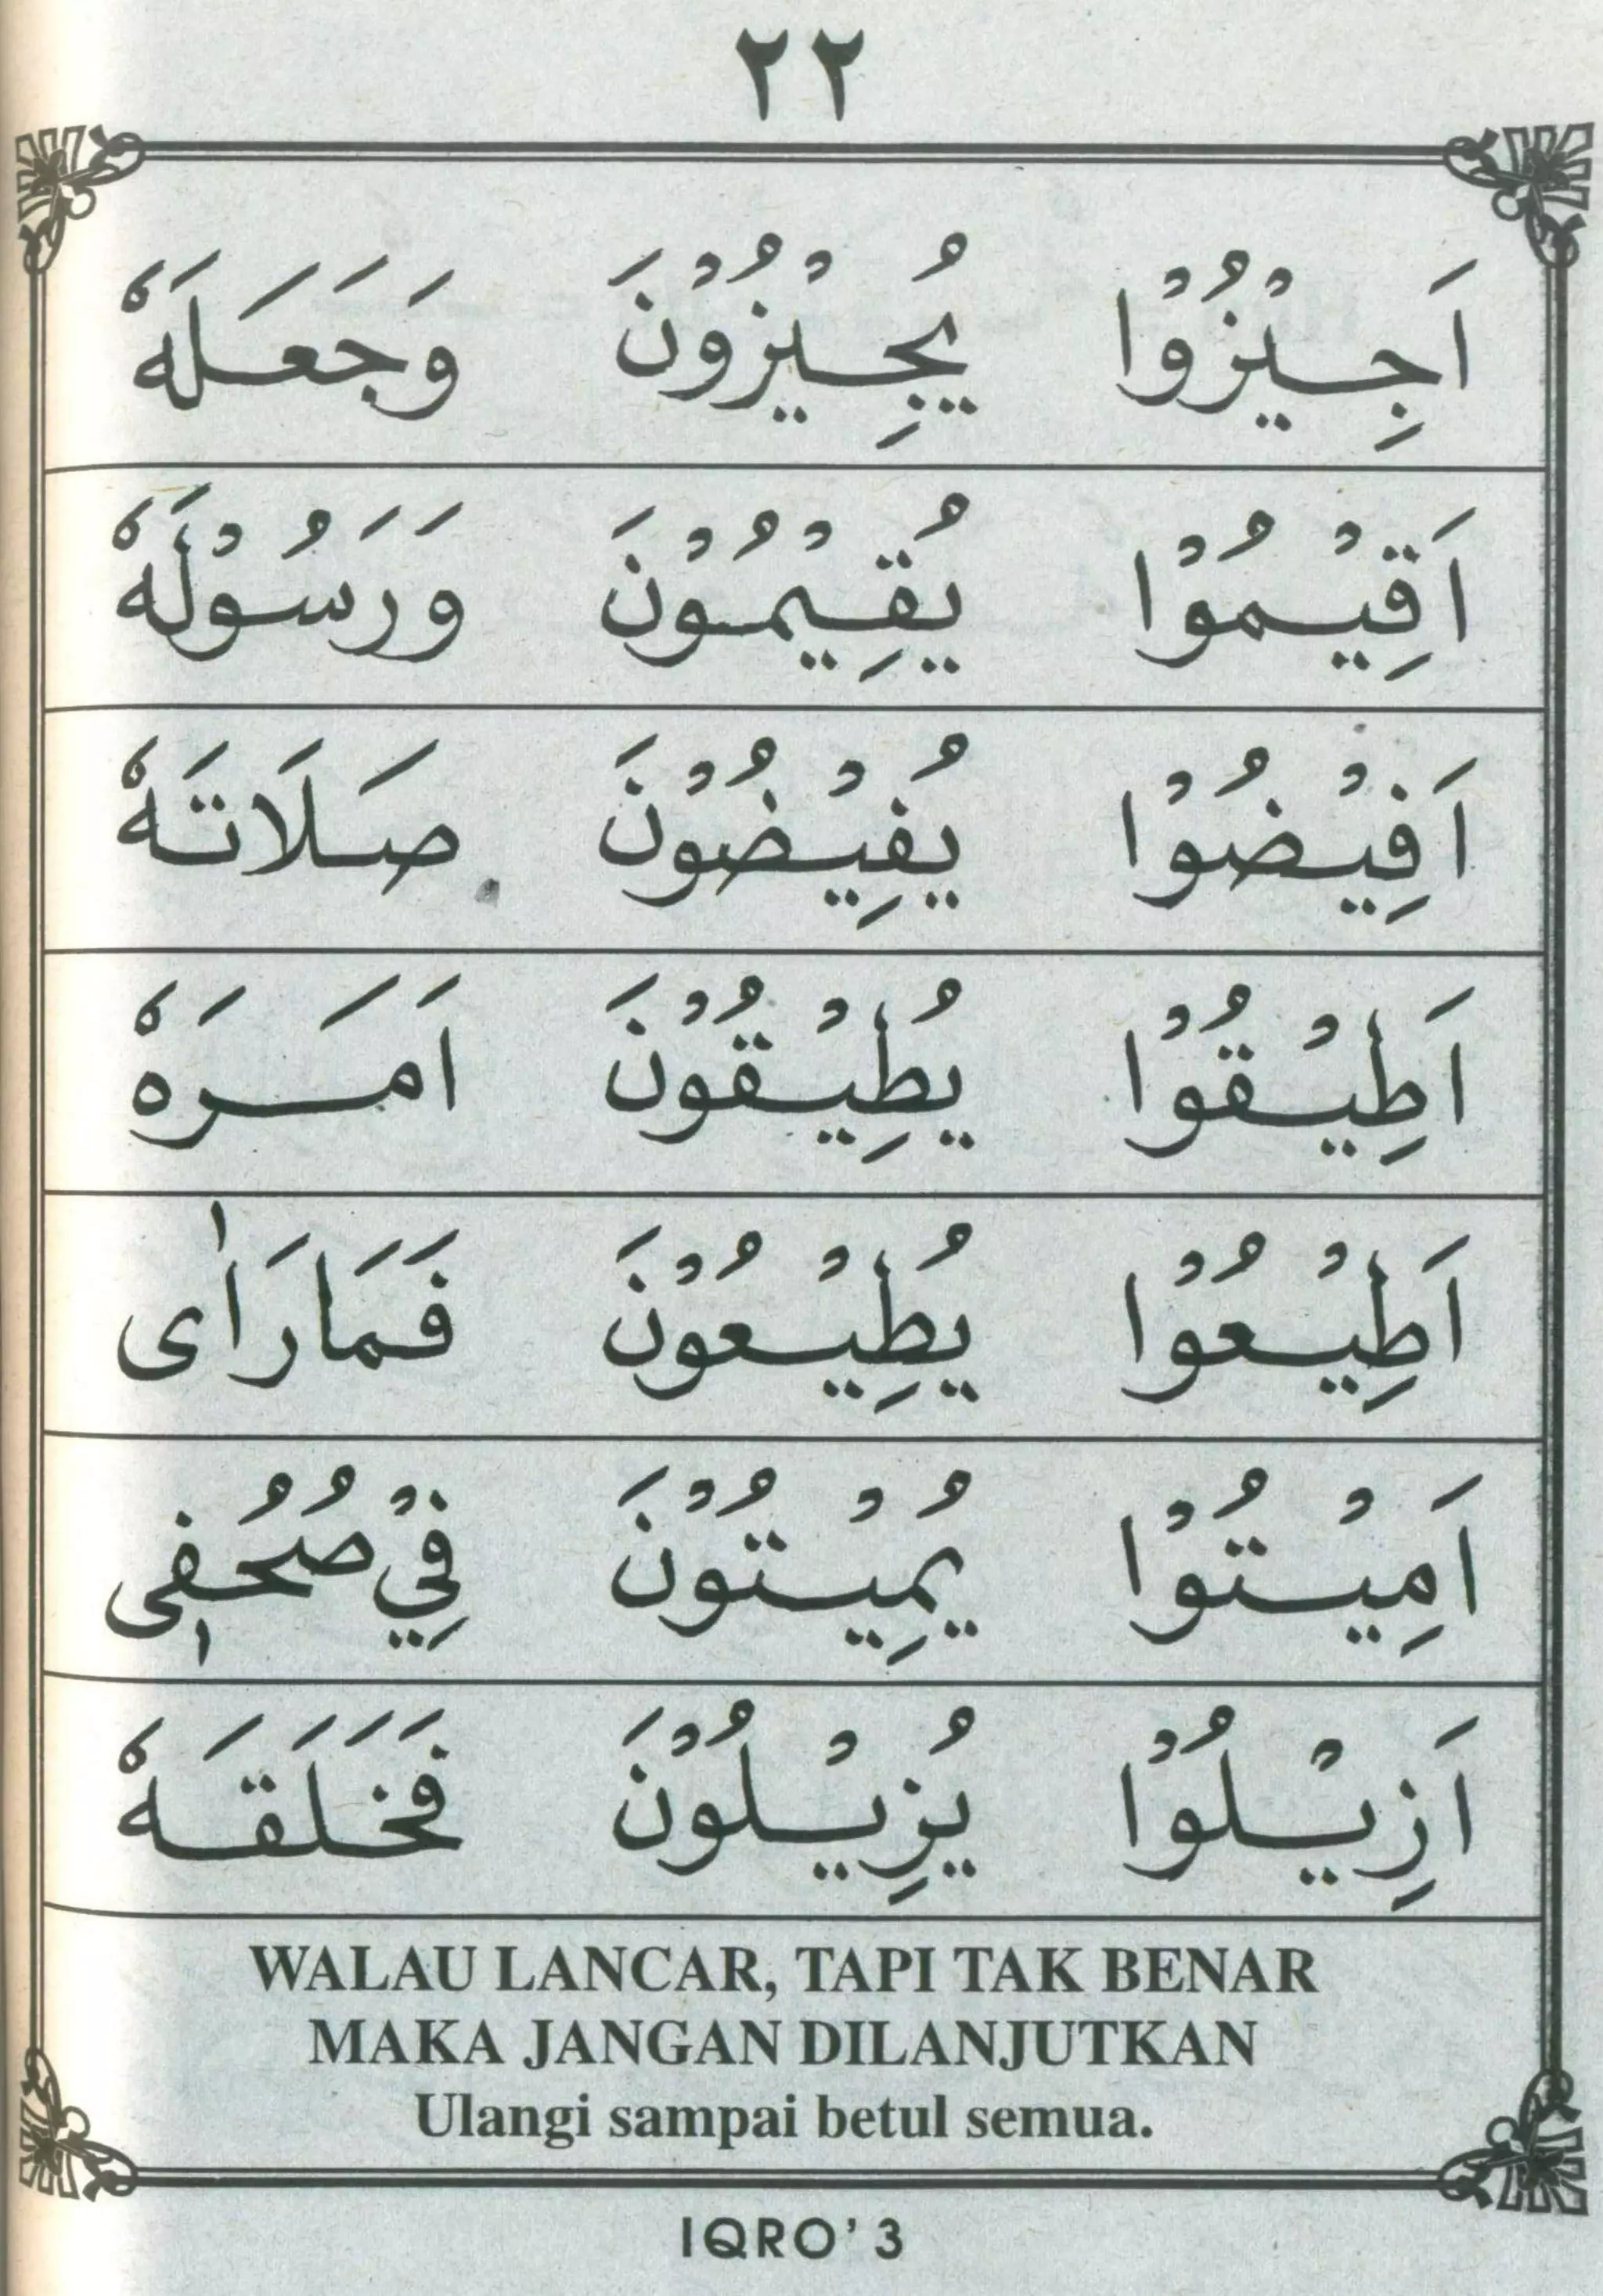 ٢٢
اَجِيْزُوْا يُجِيْزُوْنَ وَجَعَلَهٗ
اَقِيْمُوْا يُقِيْمُوْنَ وَرَسُوْلَهٗ
اَفِيْضُوْا يُفِيْضُوْنَ صَلَاتَهٗ
اَطِيْقُوْا يُطِيْقُوْنَ اَمَرَهٗ
اَطِيْعُوْا يُطِيْعُوْنَ فَمَارَاٰى
اَمِيْتُوْا يُمِيْتُوْنَ فِيْ صُحُفِٖى
اَزِيْلُوْا يُزِيْلُوْنَ فَخَلَقَهٗ
WALAU LANCAR, TAPI TAK BENAR
MAKA JANGAN DILANJUTKAN
Ulangi sampai betul semua.
IQRO' 3